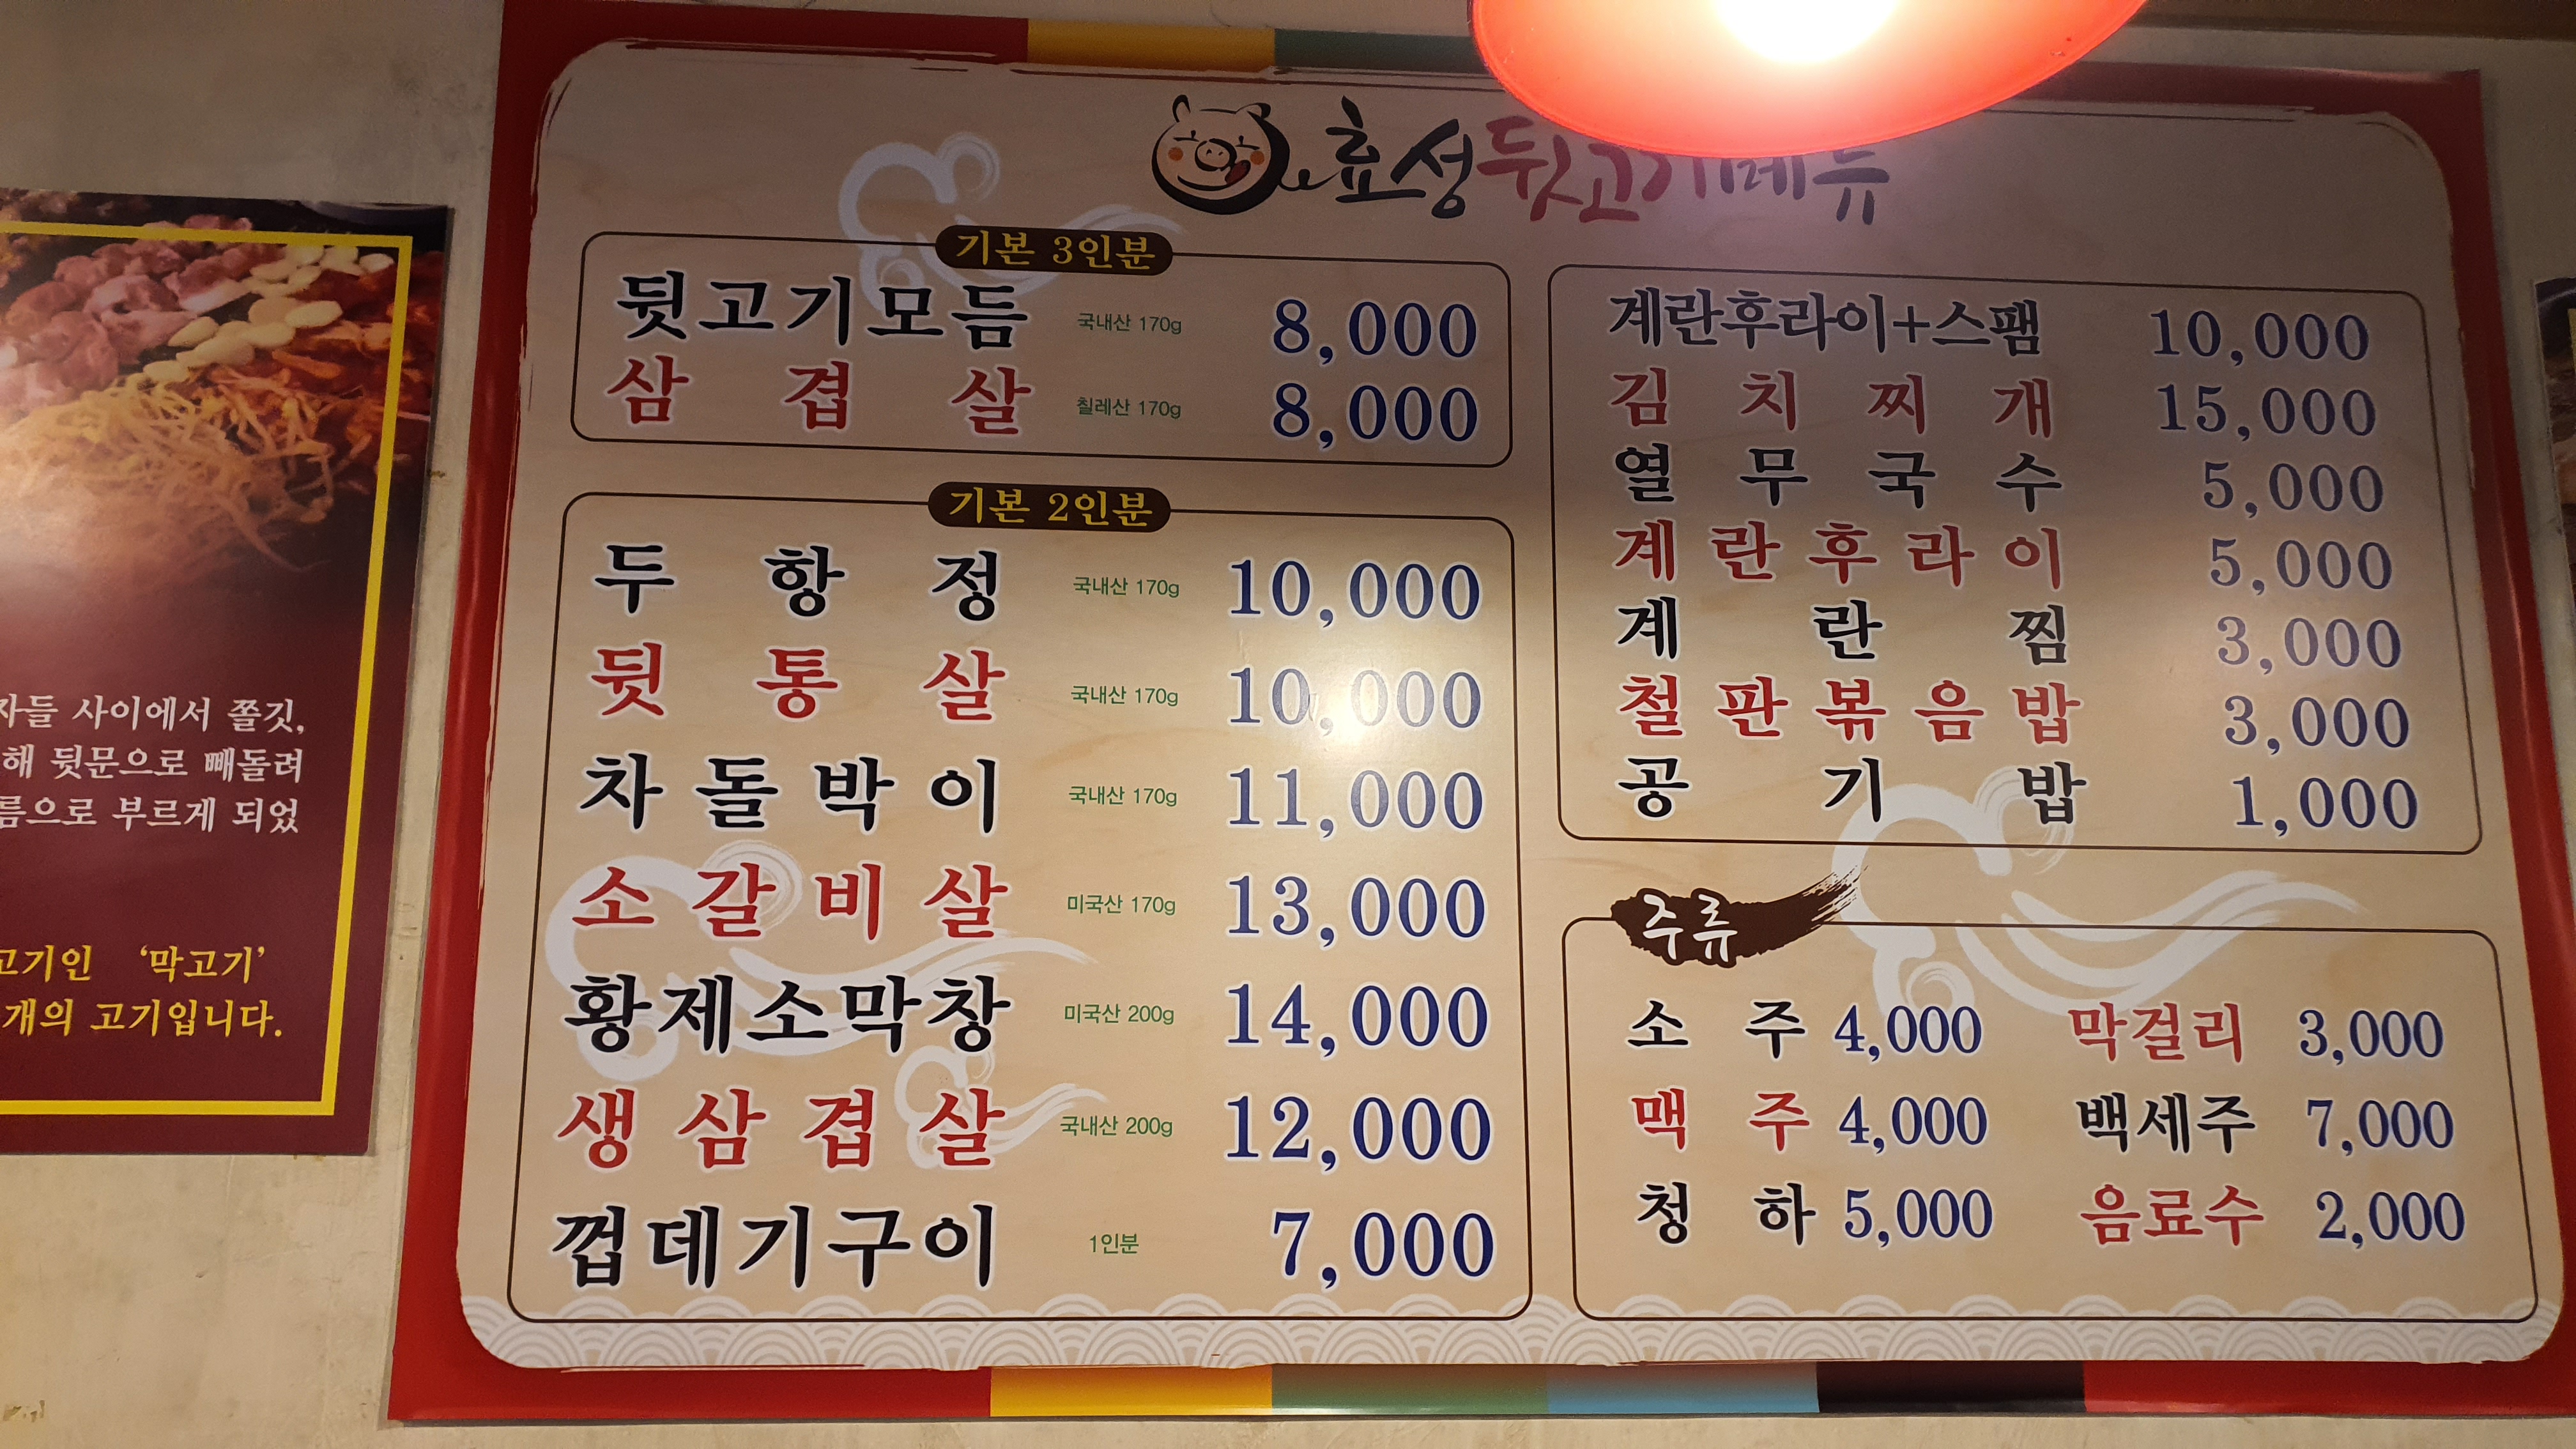 자들 사이에서 쫄깃,
해 뒷문으로 빼돌려
름으로 부르게 되었
고기인 ‘막고기’
개의 고기입니다.
효성뒷고기메뉴
기본 3인분
뒷고기모듬 국내산 170g 8,000
삼겹살 칠레산 170g 8,000
기본 2인분
두항정 국내산 170g 10,000
뒷통살 국내산 170g 10,000
차돌박이 국내산 170g 11,000
소갈비살 미국산 170g 13,000
황제소막창 미국산 200g 14,000
생삼겹살 국내산 200g 12,000
껍데기구이 1인분 7,000
계란후라이+스팸 10,000
김치찌개 15,000
열무국수 5,000
계란후라이 5,000
계란찜 3,000
철판볶음밥 3,000
공기밥 1,000
주류
소주 4,000 막걸리 3,000
맥주 4,000 백세주 7,000
청하 5,000 음료수 2,000